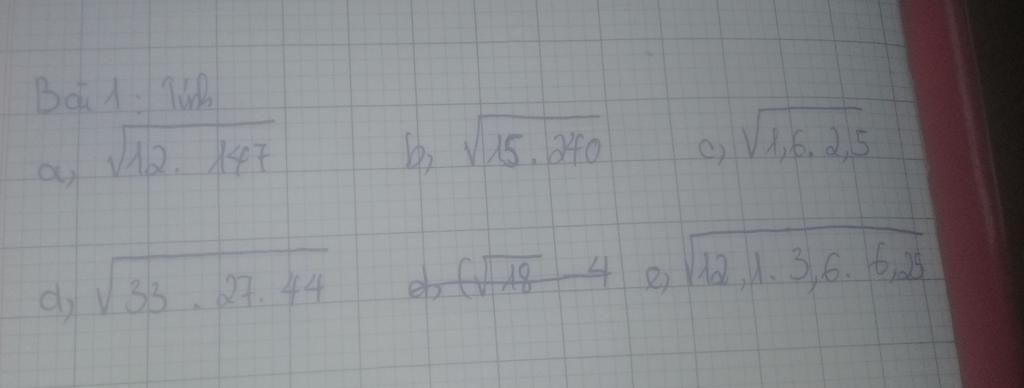 Bài 1: Tính
a, √12. 147 b, √15. 240 c, √1,6. 2,5
d, √33 . 27. 44 e, √12,1. 3,6. 6,25